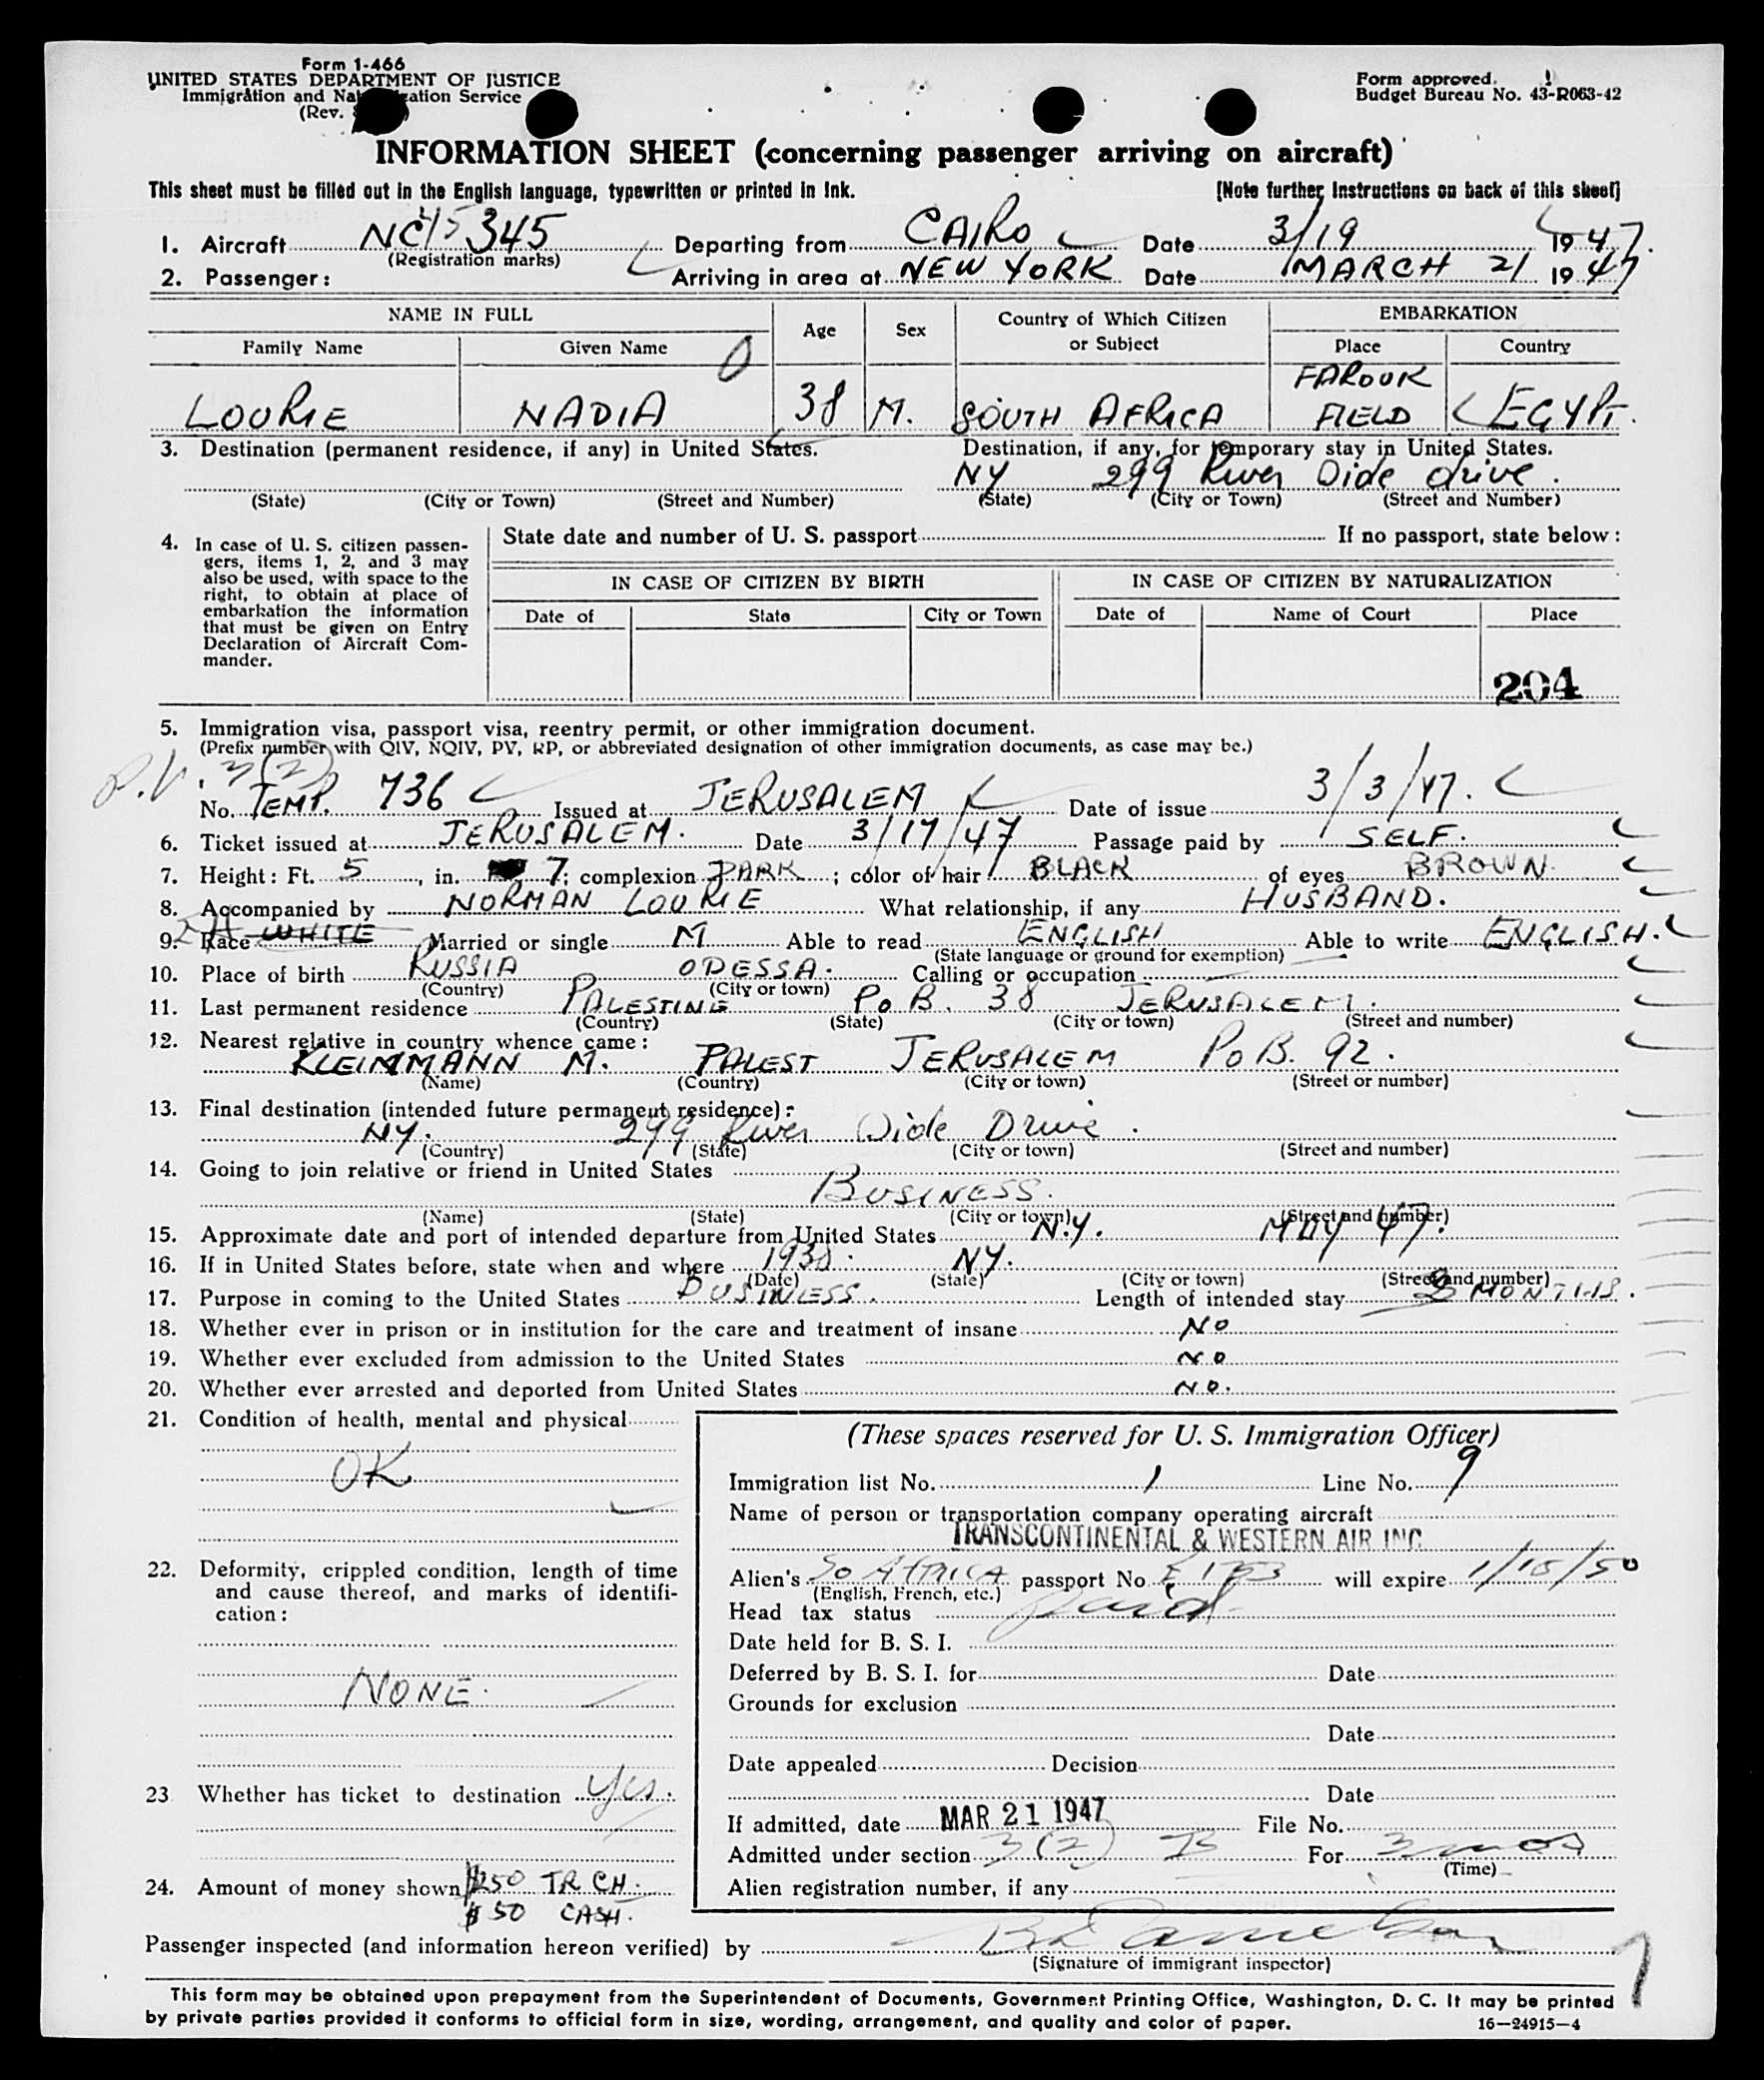 Form 1-466
UNITED STATES DEPARTMENT OF JUSTICE
Immigration and Naturalization Service
(Rev.
Form approved.
Budget Bureau No. 43-R063-42
INFORMATION SHEET (concerning passenger arriving on aircraft)
This sheet must be filled out in the English language, typewritten or printed in ink. [Note further instructions on back of this sheet]
1. Aircraft NC 45345 Departing from CAIRO Date 3/19 1947.
(Registration marks)
2. Passenger: Arriving in area at NEW YORK Date MARCH 21 1947
NAME IN FULL Age Sex Country of Which Citizen or Subject EMBARKATION
Family Name Given Name Place Country
LOURIE NADIA 38 M. SOUTH AFRICA FAROUK FIELD EGYPT.
3. Destination (permanent residence, if any) in United States. Destination, if any, for temporary stay in United States.
NY 299 River Side drive.
(State) (City or Town) (Street and Number) (State) (City or Town) (Street and Number)
4. In case of U. S. citizen passen-
gers, items 1, 2, and 3 may
also be used, with space to the
right, to obtain at place of
embarkation the information
that must be given on Entry
Declaration of Aircraft Com-
mander.
State date and number of U. S. passport If no passport, state below:
IN CASE OF CITIZEN BY BIRTH IN CASE OF CITIZEN BY NATURALIZATION
Date of State City or Town Date of Name of Court Place
204
5. Immigration visa, passport visa, reentry permit, or other immigration document.
(Prefix number with QIV, NQIV, PV, RP, or abbreviated designation of other immigration documents, as case may be.)
P.V. 3(2)
No. TEMP. 736 Issued at JERUSALEM Date of issue 3/3/47.
6. Ticket issued at JERUSALEM. Date 3/17/47 Passage paid by SELF.
7. Height: Ft. 5, in. 7; complexion DARK; color of hair BLACK of eyes BROWN.
8. Accompanied by NORMAN LOURIE What relationship, if any HUSBAND.
9. Race WHITE Married or single M Able to read ENGLISH Able to write ENGLISH.
(State language or ground for exemption)
10. Place of birth RUSSIA ODESSA. Calling or occupation
(Country) (City or town)
11. Last permanent residence PALESTINE P.O.B. 38 JERUSALEM.
(Country) (State) (City or town) (Street and number)
12. Nearest relative in country whence came:
KLEINMANN M. PALEST JERUSALEM P.O.B. 92.
(Name) (Country) (City or town) (Street or number)
13. Final destination (intended future permanent residence):
NY. 299 River Side Drive.
(Country) (State) (City or town) (Street and number)
14. Going to join relative or friend in United States
BUSINESS.
(Name) (State) (City or town) (Street and number)
15. Approximate date and port of intended departure from United States N.Y. MAY 47.
16. If in United States before, state when and where 1938. NY.
(Date) (State) (City or town) (Street and number)
17. Purpose in coming to the United States BUSINESS. Length of intended stay MONTHS.
18. Whether ever in prison or in institution for the care and treatment of insane NO
19. Whether ever excluded from admission to the United States NO
20. Whether ever arrested and deported from United States NO.
21. Condition of health, mental and physical
OK
22. Deformity, crippled condition, length of time
and cause thereof, and marks of identifi-
cation:
NONE.
23 Whether has ticket to destination Yes.
24. Amount of money shown $250 TR CH.
$50 CASH.
(These spaces reserved for U. S. Immigration Officer)
Immigration list No. 1 Line No. 9
Name of person or transportation company operating aircraft
TRANSCONTINENTAL & WESTERN AIR INC.
Alien's SO AFRICA passport No will expire 1/18/50
(English, French, etc.)
Head tax status Paid
Date held for B. S. I.
Deferred by B. S. I. for Date
Grounds for exclusion
Date
Date appealed Decision
Date
If admitted, date MAR 21 1947 File No.
Admitted under section 3(2) B For 3 mos
(Time)
Alien registration number, if any
Passenger inspected (and information hereon verified) by
(Signature of immigrant inspector)
This form may be obtained upon prepayment from the Superintendent of Documents, Government Printing Office, Washington, D. C. It may be printed
by private parties provided it conforms to official form in size, wording, arrangement, and quality and color of paper. 16—24915-4